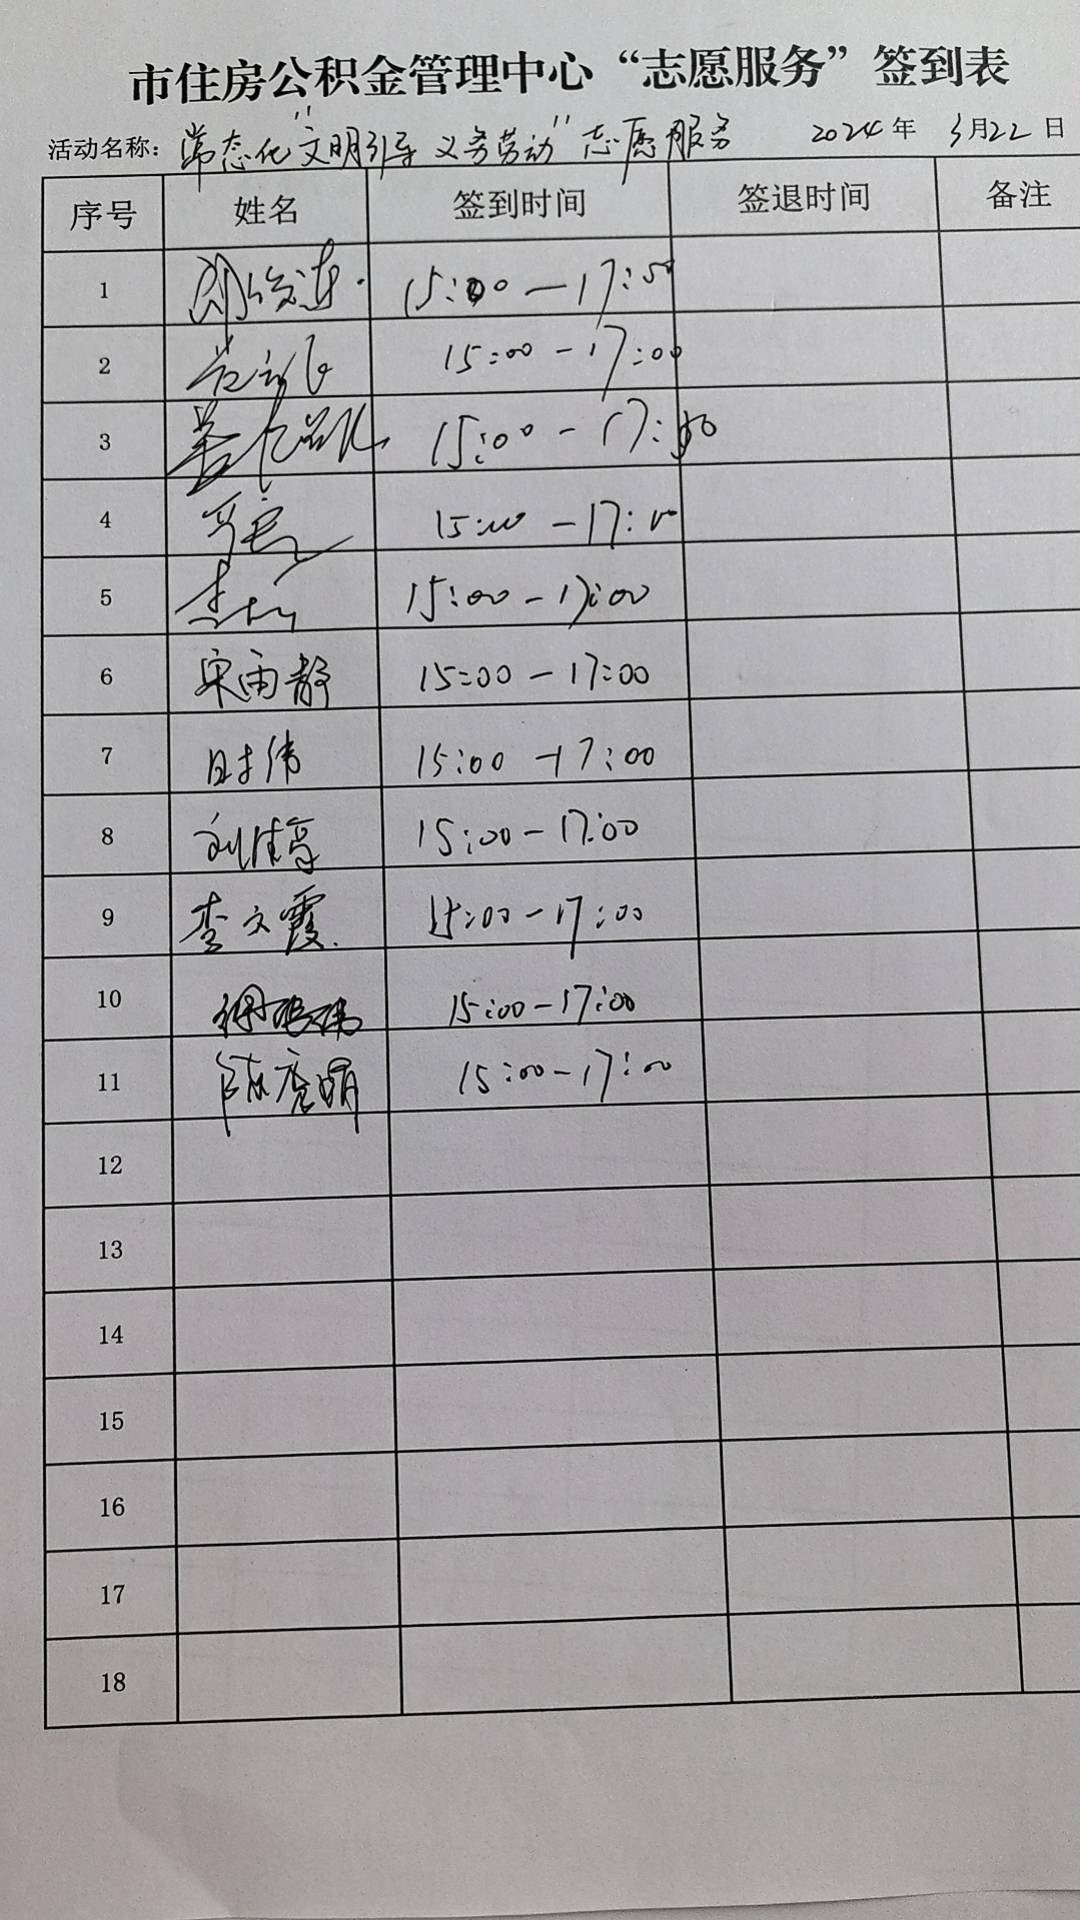 市住房公积金管理中心“志愿服务”签到表
活动名称：常态化“文明引导 义务劳动”志愿服务 2024年 3月22日
序号 姓名 签到时间 签退时间 备注
1 15:00-17:50
2 15:00-17:00
3 15:00-17:
4 15:00-17:00
5 15:00-17:00
6 宋雨静 15:00-17:00
7 时伟 15:00-17:00
8 刘 15:00-17:00
9 李文霞 15:00-17:00
10 15:00-17:00
11 陈 15:00-17:00
12
13
14
15
16
17
18